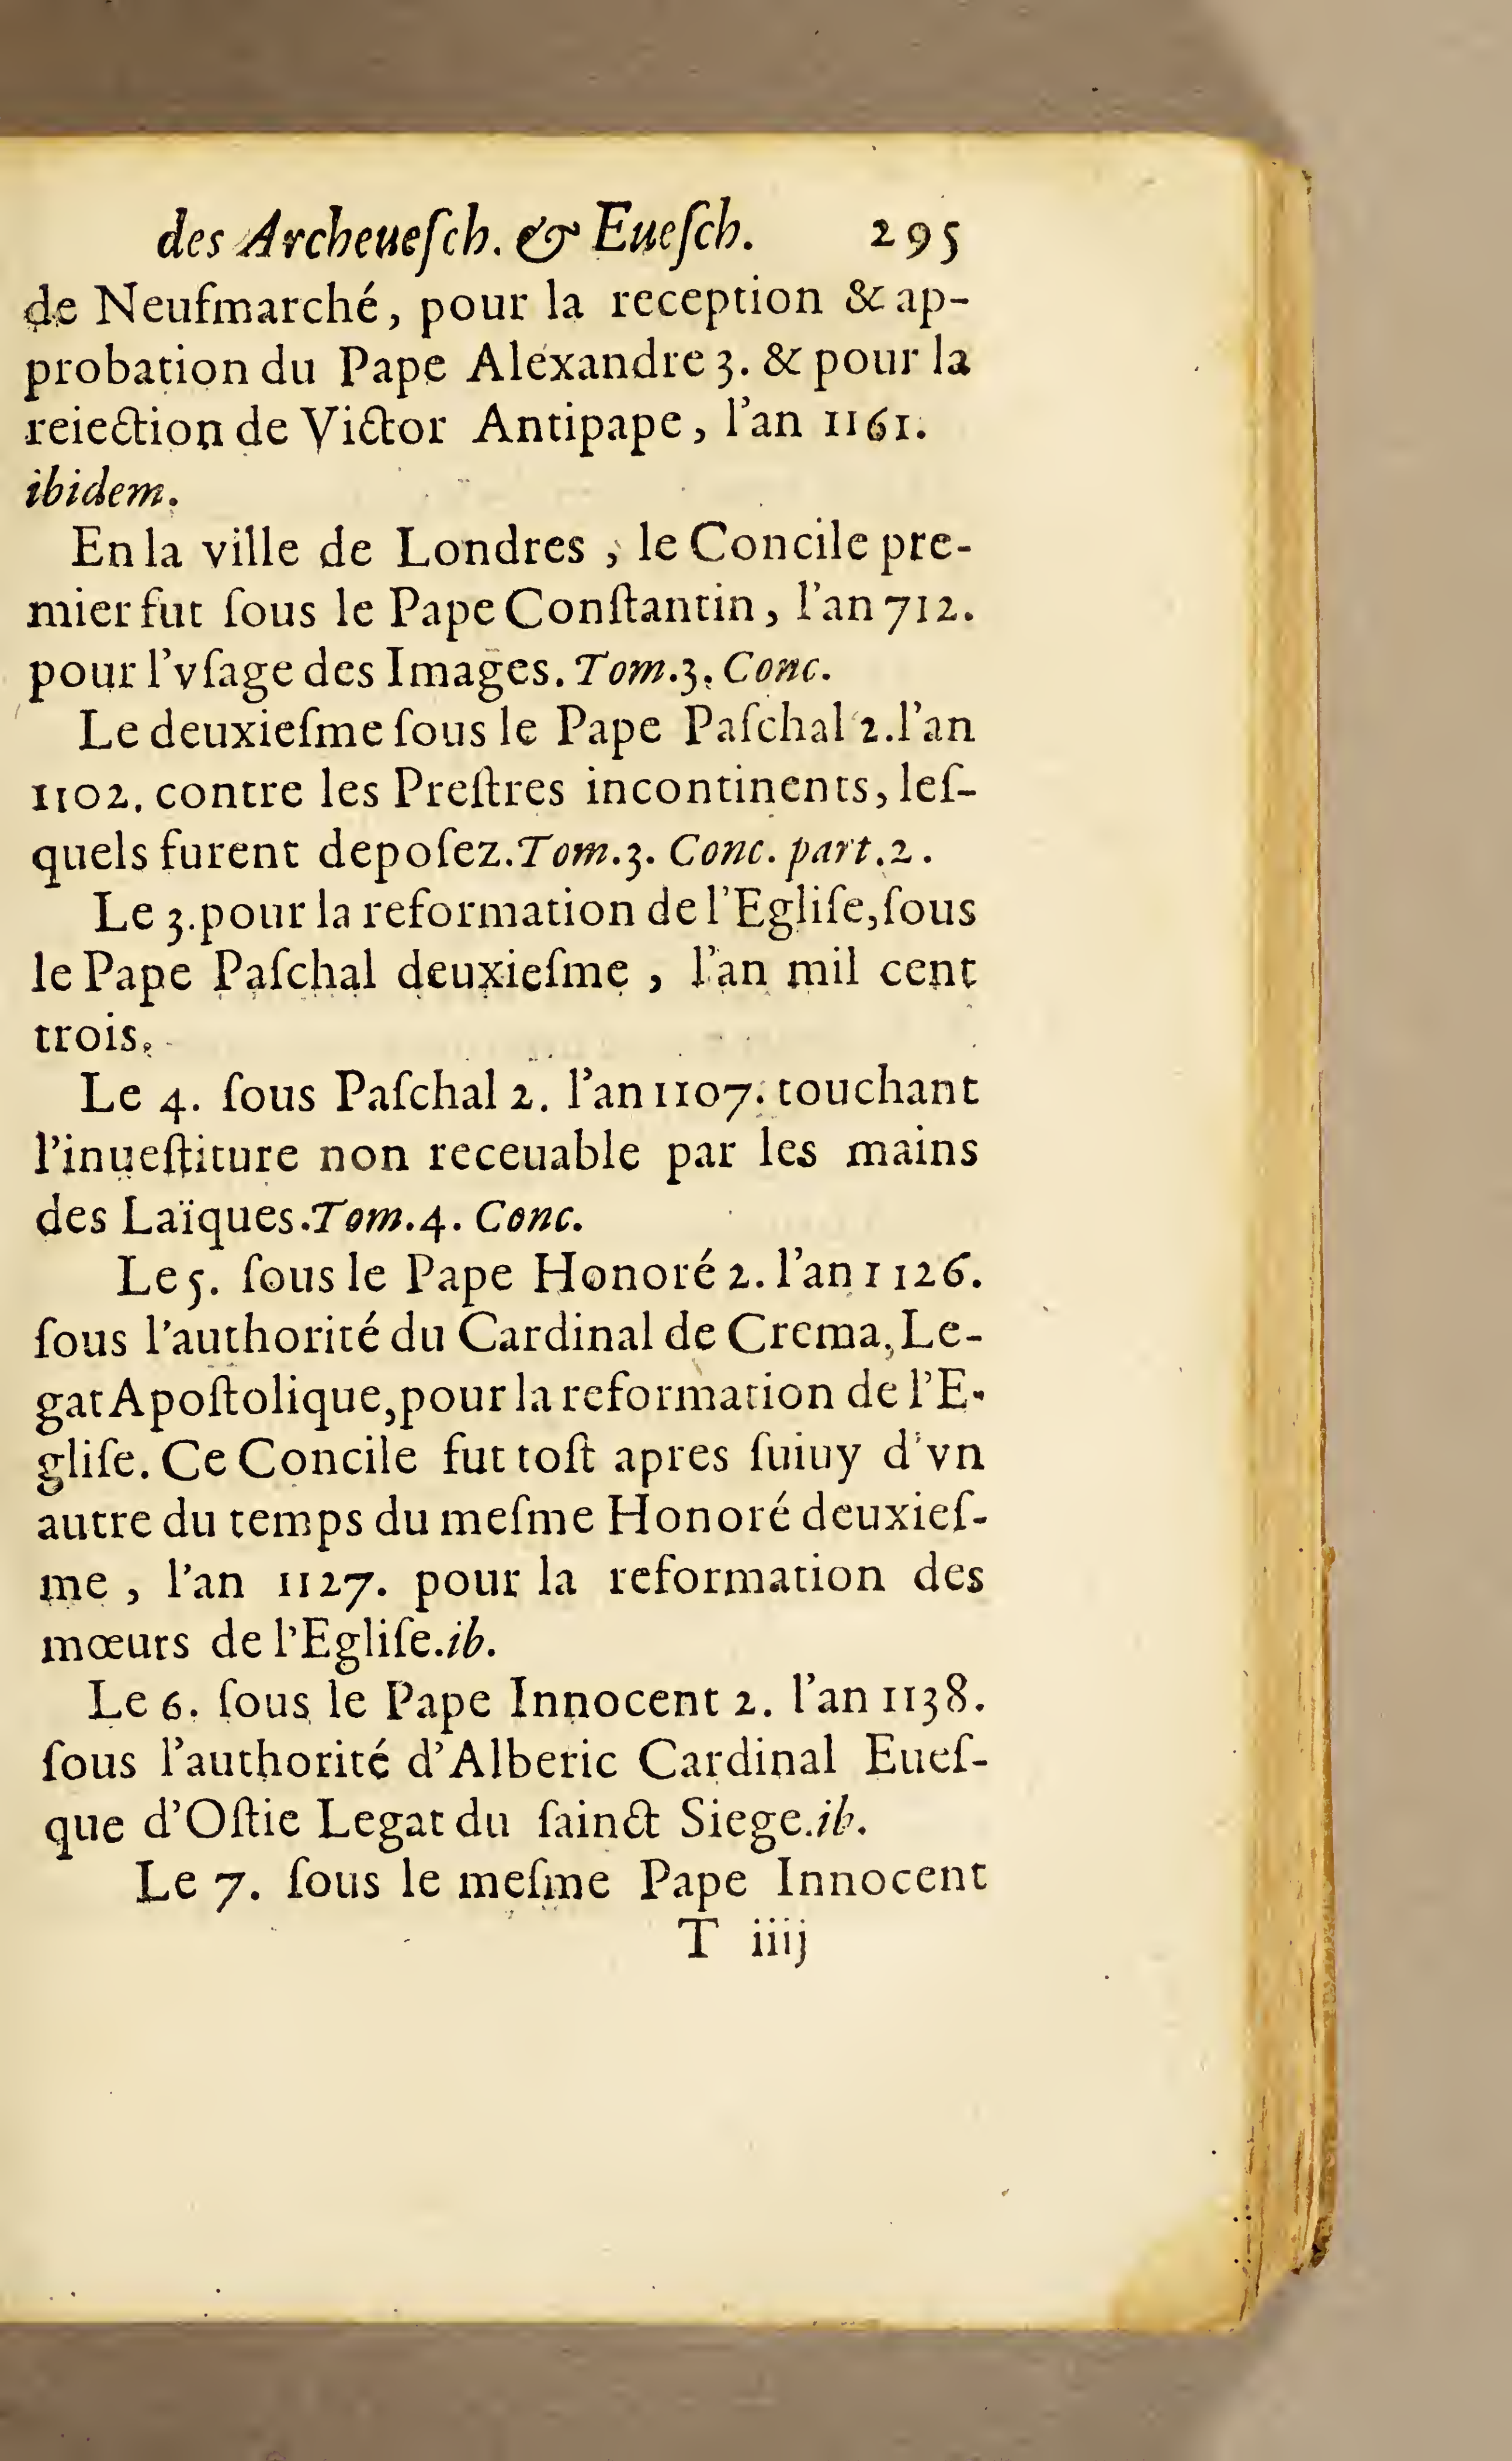 des Archeueſch. & Eueſch. 295
de Neufmarché, pour la reception & ap-
probation du Pape Alexandre 3. & pour la
reiection de Victor Antipape, l'an 1161.
ibidem.
En la ville de Londres, le Concile pre-
mier fut ſous le Pape Conſtantin, l'an 712.
pour l'vſage des Images. Tom.3. Conc.
Le deuxieſme ſous le Pape Paſchal 2. l'an
1102. contre les Preſtres incontinents, leſ-
quels furent depoſez. Tom.3. Conc. part.2.
Le 3. pour la reformation de l'Egliſe, ſous
le Pape Paſchal deuxieſme, l'an mil cent
trois.
Le 4. ſous Paſchal 2. l'an 1107. touchant
l'inueſtiture non receuable par les mains
des Laïques. Tom.4. Conc.
Le 5. ſous le Pape Honoré 2. l'an 1126.
ſous l'authorité du Cardinal de Crema, Le-
gat Apoſtolique, pour la reformation de l'E-
gliſe. Ce Concile fut toſt apres ſuiuy d'vn
autre du temps du meſme Honoré deuxieſ-
me, l'an 1127. pour la reformation des
mœurs de l'Egliſe. ib.
Le 6. ſous le Pape Innocent 2. l'an 1138.
ſous l'authorité d'Alberic Cardinal Eueſ-
que d'Oſtie Legat du ſainct Siege. ib.
Le 7. ſous le meſme Pape Innocent
T iiij